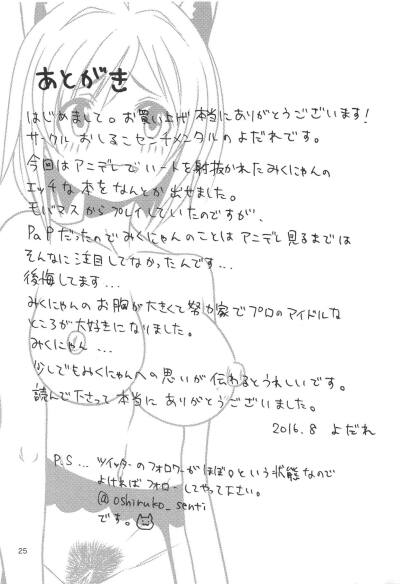 あとがき
はじめまして。お買い上げ本当にありがとうございます!
サークル おしるこセンチメンタルのよだれです。
今回はアニデレでハートを射抜かれたみくにゃんの
エッチな本をなんとか出せました。
モバマスからプレイしていたのですが、
PaPだったのでみくにゃんのことはアニデレ見るまでは
そんなに注目してなかったんです…
後悔してます…
みくにゃんのお胸が大きくて努力家でプロのアイドルな
ところが大好きになりました。
みくにゃん…
少しでもみくにゃんへの思いが伝わるとうれしいです。
読んで下さって本当にありがとうございました。
2016.8 よだれ
P.S... ツイッターのフォロワーがほぼ0という状態なので
よければフォローしてやって下さい。
@oshiruko_senti
です。
25